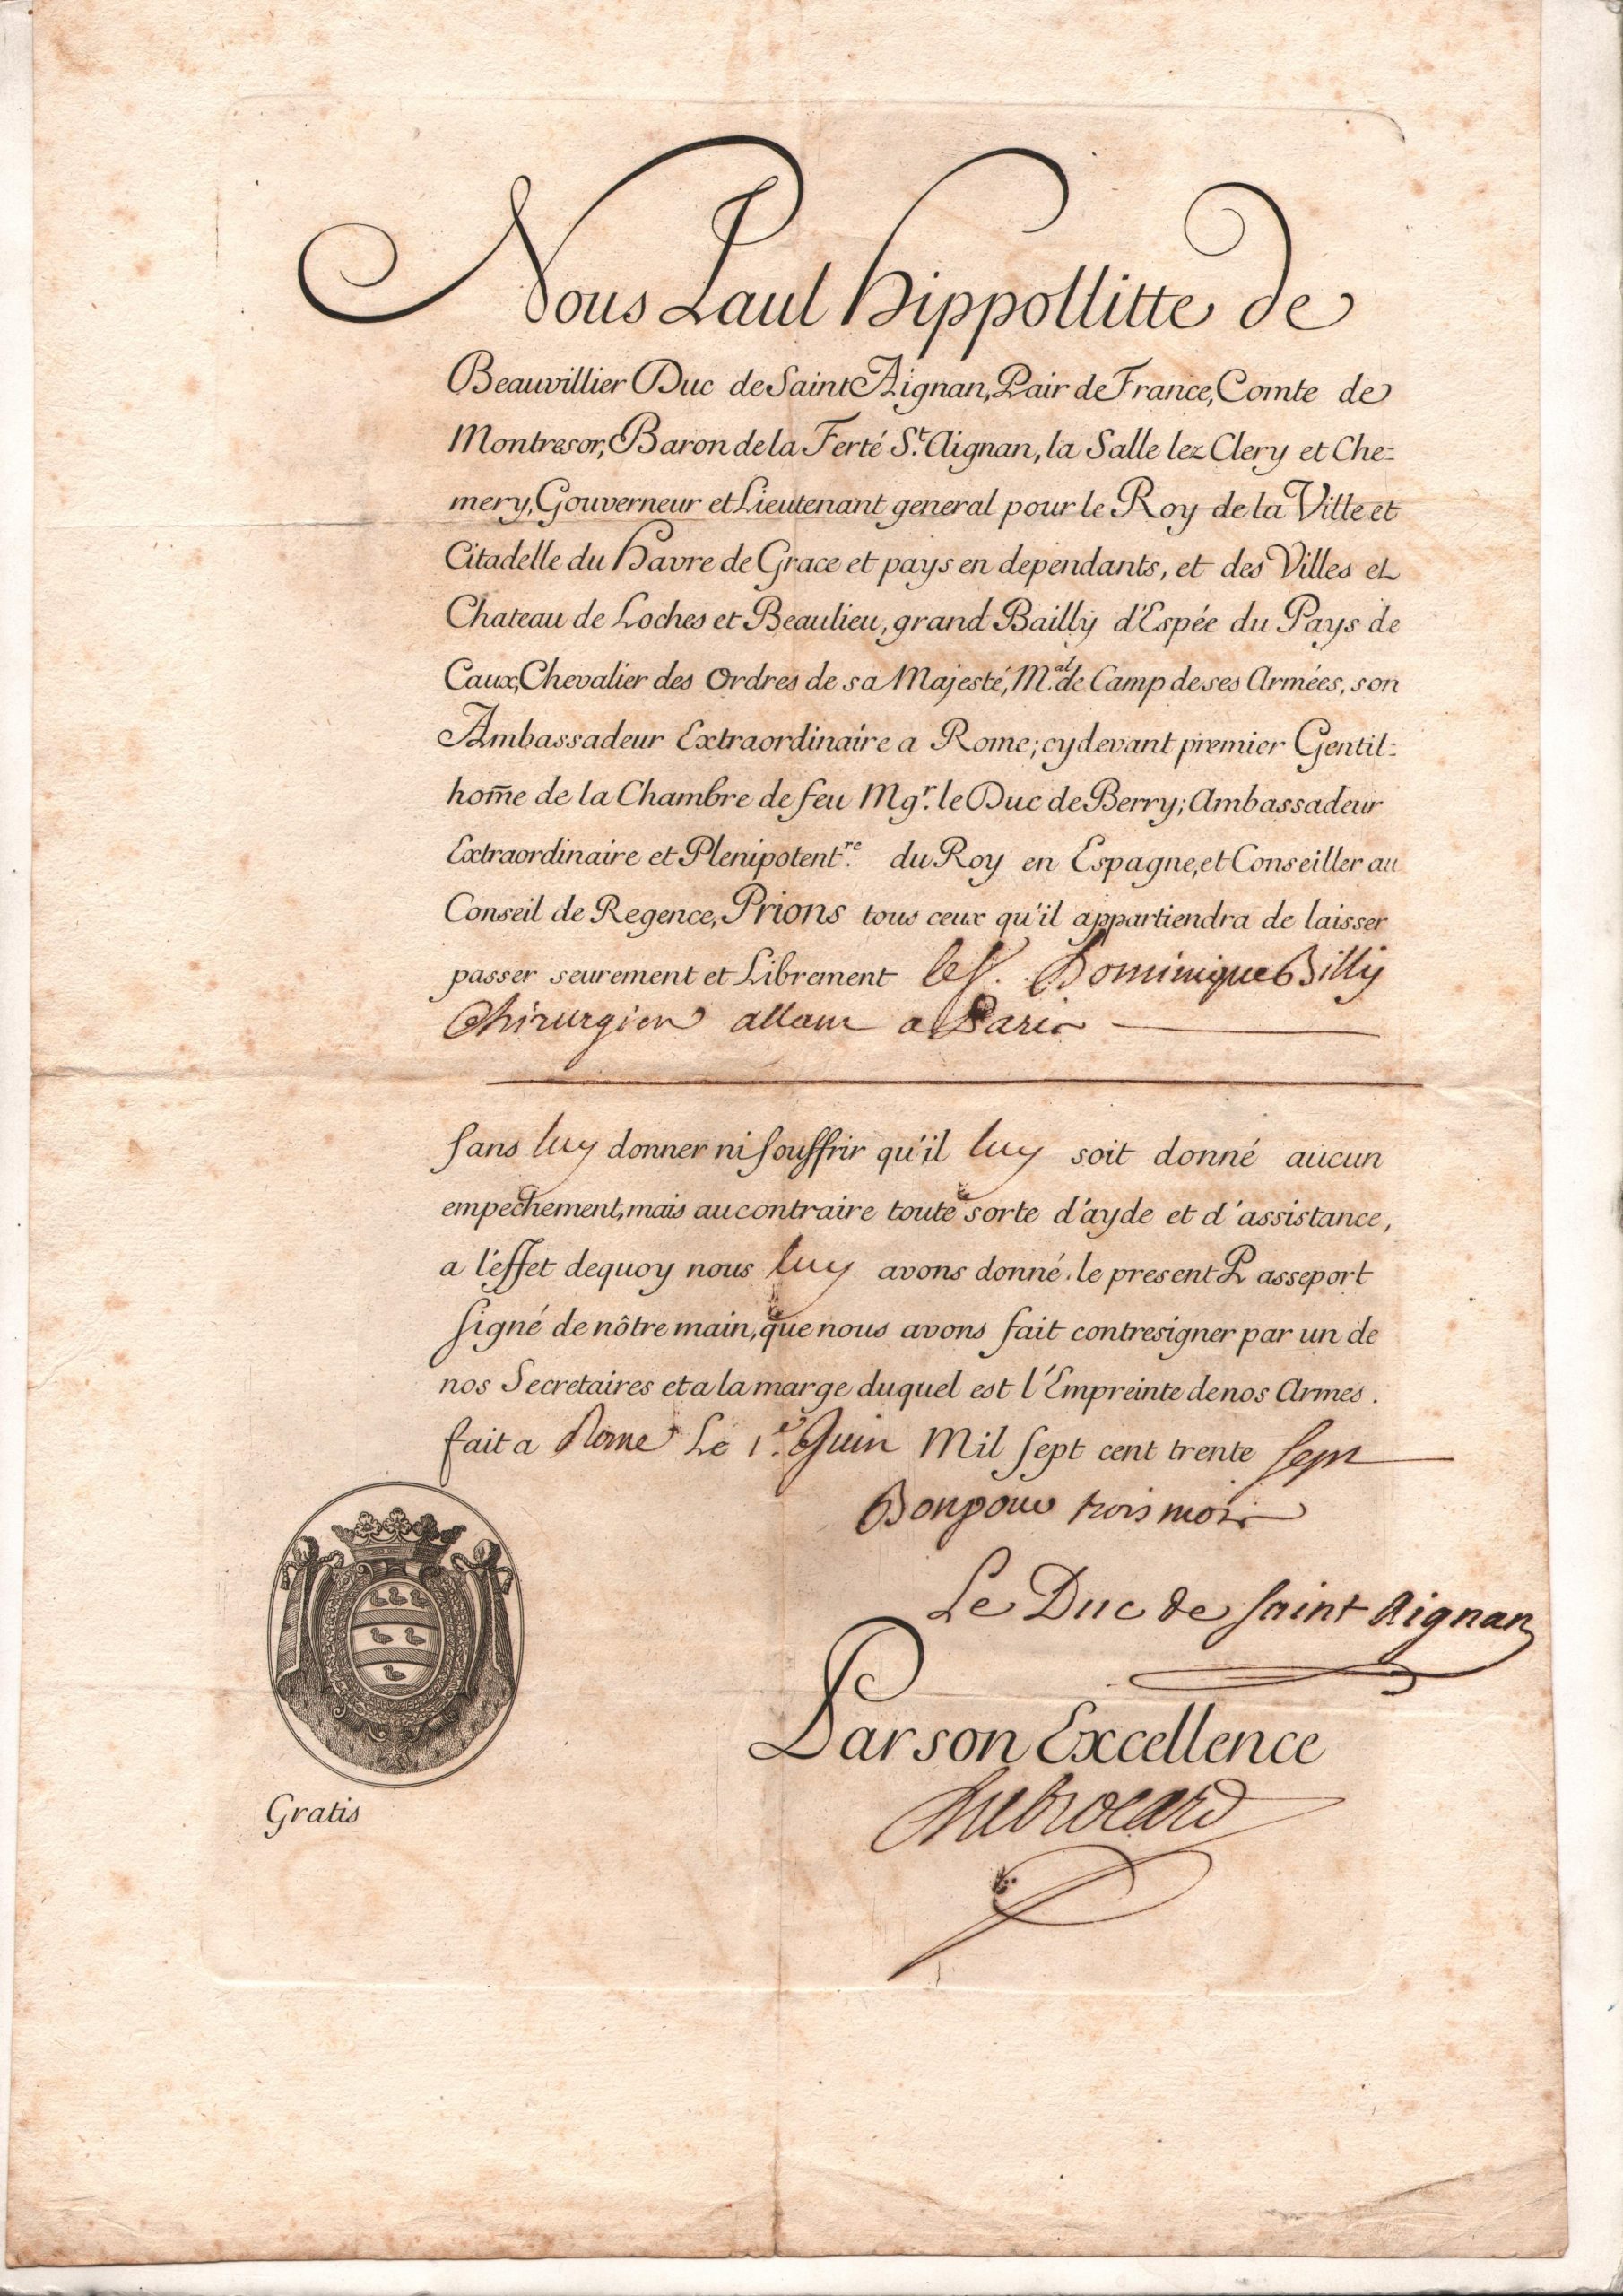 Nous Paul Hippollitte de
Beauvillier Duc de Saint Aignan, Pair de France, Comte de
Montresor, Baron de la Ferté St. Aignan, la Salle lez Clery et Che=
mery, Gouverneur et Lieutenant general pour le Roy de la Ville et
Citadelle du Havre de Grace et pays en dependants, et des Villes et
Chateau de Loches et Beaulieu, grand Bailly d'Espée du Pays de
Caux, Chevalier des Ordres de sa Majesté, M.al de Camp de ses Armées, son
Ambassadeur Extraordinaire a Rome; cydevant premier Gentil=
hom̄e de la Chambre de feu Mgr. le Duc de Berry; Ambassadeur
Extraordinaire et Plenipotent.re du Roy en Espagne, et Conseiller au
Conseil de Regence, Prions tous ceux qu'il appartiendra de laisser
passer seurement et Librement le S. Dominique Billy
Chirurgien allant a Paris
sans luy donner ni souffrir qu'il luy soit donné aucun
empechement, mais au contraire toute sorte d'ayde et d'assistance,
a l'effet dequoy nous luy avons donné le present Passeport
signé de nôtre main, que nous avons fait contresigner par un de
nos Secretaires et a la marge duquel est l'Empreinte de nos Armes.
fait a Rome Le 1.er Juin Mil sept cent trente sept
Bon pour trois mois
Le Duc de saint Aignan
Par son Excellence
Dubrocard
Gratis